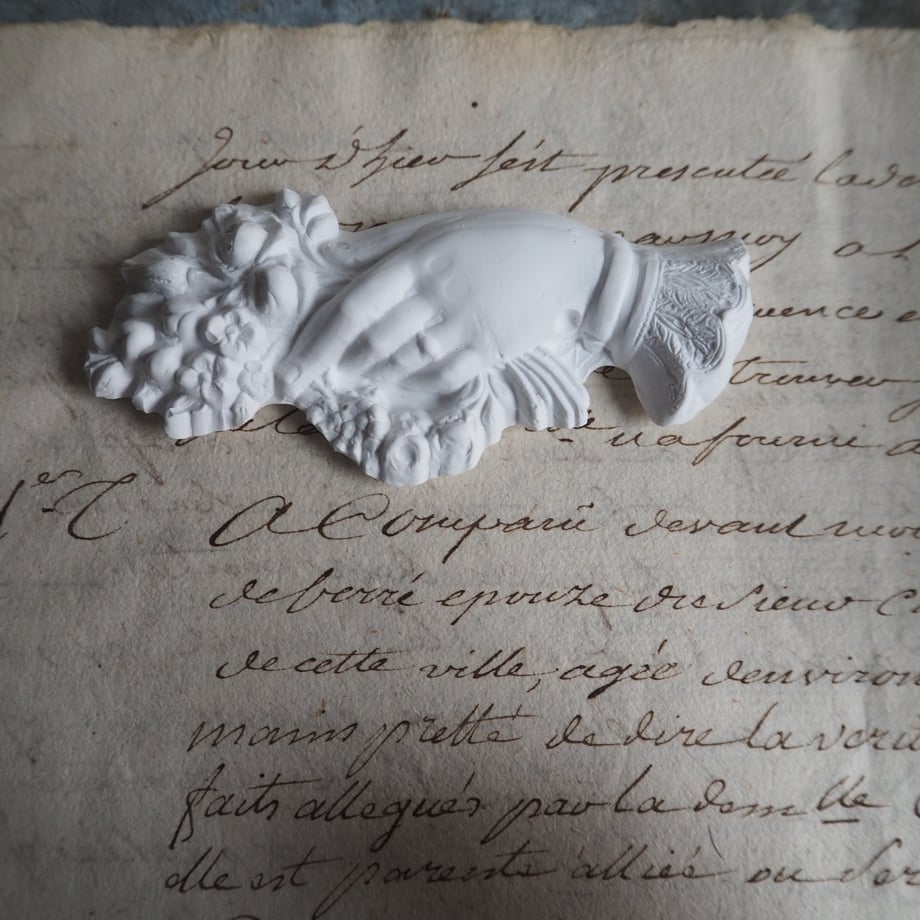 Jour d'hier s'est presentée la
a
uence e
trouver
u a fournie
A Comparu devant moi
de berré epouze du Sieur
de cette ville, agée d'environ
mains pretté de dire la veri
faits allegués par la dem lle
elle est parente alliée ou Ser